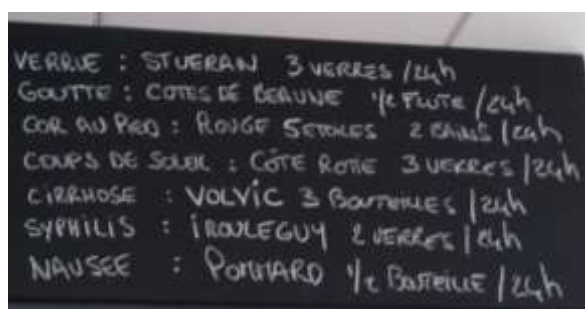 VERRUE : STUERAN 3 VERRES /24h
GOUTTE : COTES DE BEAUNE 1/2 FLUTE /24h
COR AU PIED : ROUGE 5 ETOILES 2 BAINS /24h
COUPS DE SOLEIL : CÔTE ROTIE 3 VERRES /24h
CIRRHOSE : VOLVIC 3 BOUTEILLES /24h
SYPHILIS : IROULEGUY 2 VERRES /24h
NAUSEE : POMMARD 1/2 BOUTEILLE /24h